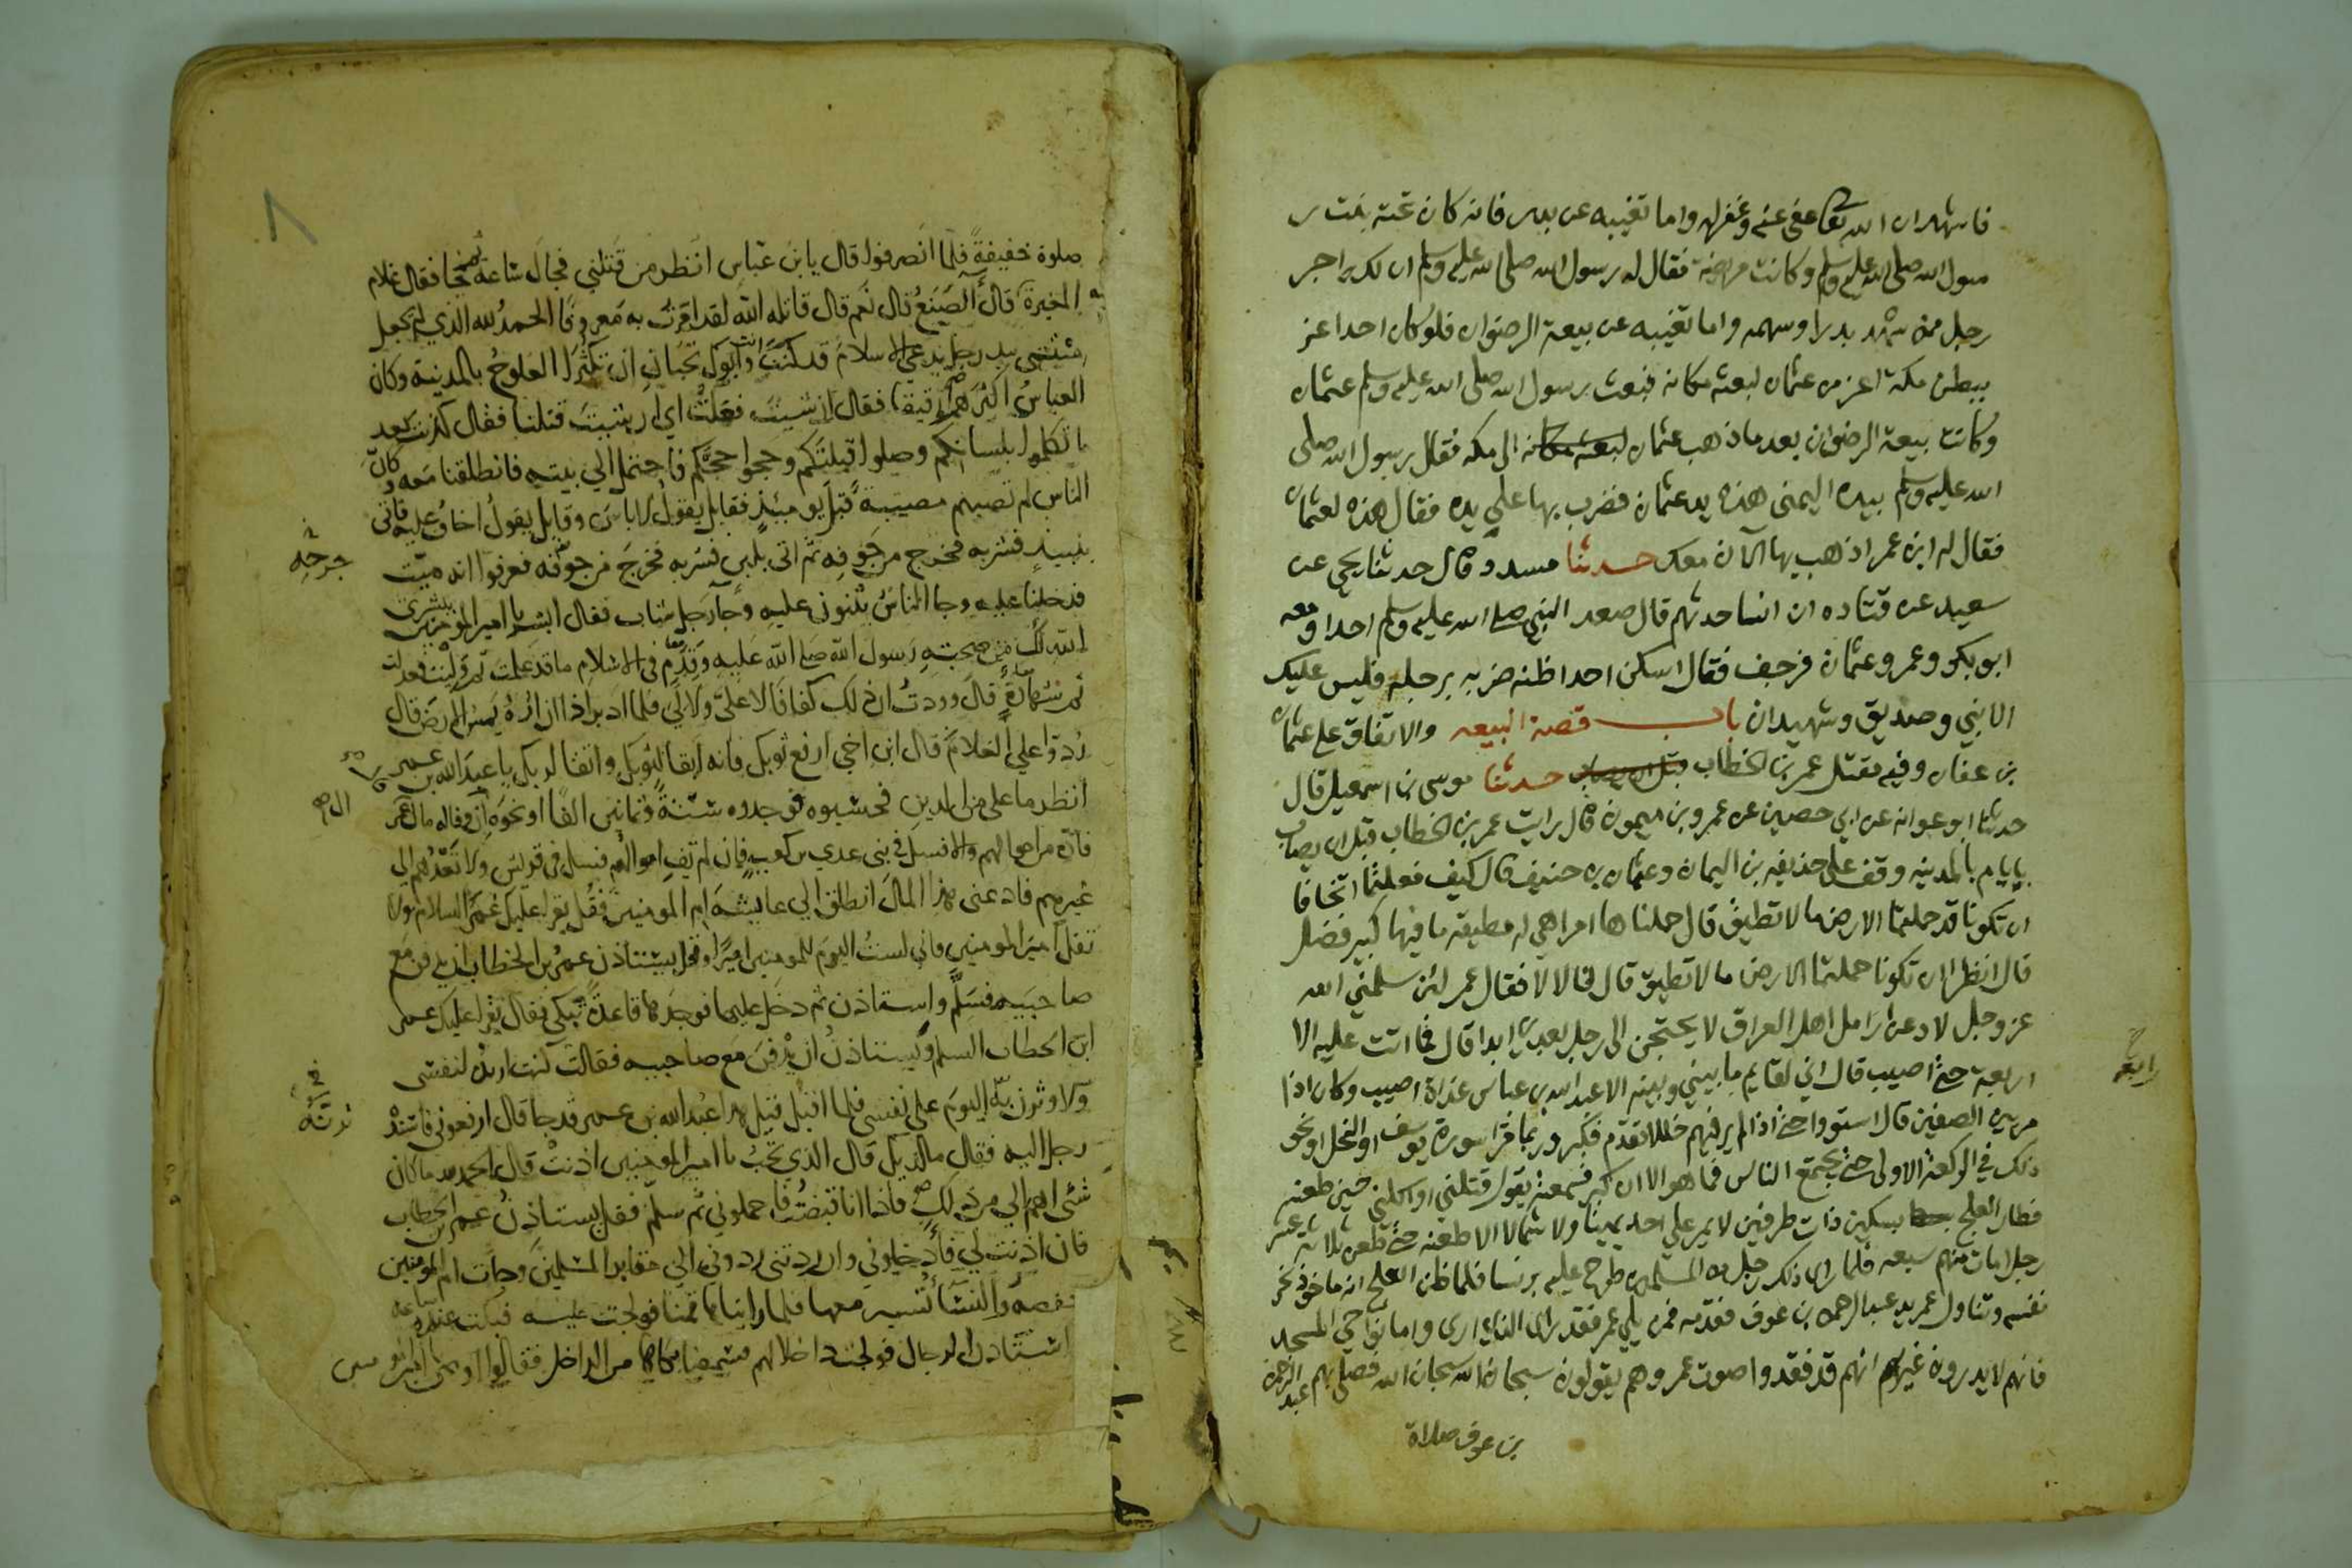 فاشهد ان الله تعا عفى عنه وغفر له واما تغيبه عن بدر فانه كان تحته بنت ر
سول الله صلى الله عليه وسلم وكانت مريضة فقال له رسول الله صلى الله عليه وسلم ان لك اجر
رجل ممن شهد بدرا وسهمه واما تغيبه عن بيعة الرضوان فلو كان احدا عز
ببطن مكة اعز من عثمان لبعثه مكانه فبعث رسول الله صلى الله عليه وسلم عثمان
وكانت بيعة الرضوان بعد ما ذهب عثمان لبعثه مكانه الى مكه فقال رسول الله صلى
الله عليه وسلم بيده اليمنى هذه يد عثمان فضرب بها على يده فقال هذه لعثمان
فقال له ابن عمر اذهب بها الآن معك حدثنا مسدد قال حدثنا يحيى عن
سعيد عن قتاده ان انسا حدثهم قال صعد النبي صلى الله عليه وسلم احدا ومعه
ابو بكر وعمر وعثمان فرجف فقال اسكن احد اظنه ضربه برجله فليس عليك
الا نبي وصديق وشهيدان باب قصة البيعه والاتفاق على عثمان
بن عفان وفيه مقتل عمر بن الخطاب قبل ان يصاب حدثنا موسى بن اسمعيل قال
حدثنا ابو عوانه عن ابي حصين عن عمرو بن ميمون قال رايت عمر بن الخطاب قبل ان يصاب
بايام بالمدينه وقف على حذيفه بن اليمان وعثمان بن حنيف قال كيف فعلتما اتخافا
ان تكونا قد حملتما الارض ما لا تطيق قال حملناها امرا هي له مطيقه ما فيها كبير فضل
قال انظرا ان تكونا حملتما الارض ما لا تطيق قال قالا لا فقال عمر لئن سلمني الله
عز وجل لادعن ارامل اهل العراق لا يحتجن الى رجل بعدي ابدا قال فما اتت عليه الا
اربعة حتى اصيب قال اني لقايم ما بيني وبينه الا عبد الله بن عباس غداة اصيب وكان اذا
رابعة
مر بين الصفين قال استووا حتى اذا لم ير فيهم خللا تقدم فكبر وربما قرا سورة يوسف او النحل او نحو
ذلك في الركعة الاولى حتى يجتمع الناس فما هو الا ان كبر فسمعته يقول قتلني او اكلني حين طعنه
فطار العلج بسكين ذات طرفين لا يمر على احد يمينا ولا شمالا الا طعنه حتى طعن ثلاثة عشر
رجلا مات منهم سبعه فلما راى ذلك رجل من المسلمين طرح عليه برنسا فلما ظن العلج انه ماخوذ نحر
نفسه وتناول عمر يد عبد الرحمن بن عوف فقدمه فمن يلي عمر فقد راى الذي ارى واما نواحي المسجد
فانهم لا يدرون غير انهم قد فقدوا صوت عمر وهم يقولون سبحان الله سبحان الله فصلى بهم عبد الرحمن
بن عوف صلاة
٨
صلوة خفيفة فلما انصرفوا قال يا بن عباس انظر من قتلني فجال ساعة ثم جا فقال غلام
المغيرة قال الصنع قال نعم قال قاتله الله لقد امرت به معروفا الحمد لله الذي لم يجعل
ميتتي بيد رجل يدعي الاسلام قد كنت انت وابوك تحبان ان تكثر العلوج بالمدينة وكان
العباس اكثرهم رقيقا فقال ان شيت فعلت اي ان شيت قتلنا فقال كذبت بعد
ما تكلموا بلسانكم وصلوا قبلتكم وحجوا حجكم فاحتمل الي بيته فانطلقنا معه وكان
الناس لم تصبهم مصيبة قبل يوميذ فقايل يقول لا باس وقايل يقول اخاف عليه فاتى
بنبيذ فشربه فخرج من جوفه ثم اتى بلبن فشربه فخرج من جوفه فعرفوا انه ميت
جرحه
فدخلنا عليه وجا الناس يثنون عليه وجا رجل شاب فقال ابشر يا امير المومنين ببشرى
الله لك من صحبته رسول الله صلى الله عليه وقدم في الاسلام ما قد علمت ثم وليت فعدلت
ثم شهادة قال وددت ان ذلك كفافا لا علي ولا لي فلما ادبر اذا ازاره يمس الارض قال
ردوا علي الغلام قال ابن اخي ارفع ثوبك فانه ابقا لثوبك واتقا لربك يا عبد الله بن عمر
انظر ما علي من الدين فحسبوه فوجدوه ستة وثمانين الفا او نحوه ان وفا له مال آل عمر
فاده من اموالهم والا فسل في بني عدي بن كعب فان لم تف اموالهم فسل في قريش ولا تعدهم الي
غيرهم فاد عني هذا المال انطلق الي عايشة ام المومنين فقل يقرا عليك عمر السلام ولا
تقل امير المومنين فاني لست اليوم للمومنين اميرا وقل يستاذن عمر بن الخطاب ان يدفن مع
صاحبيه فسلم واستاذن ثم دخل عليها فوجدها قاعدة تبكي فقال يقرا عليك عمر
ابن الخطاب السلم ويستاذن ان يدفن مع صاحبيه فقالت كنت اريده لنفسي
ولاوثرن به اليوم على نفسي فلما اقبل قيل هذا عبد الله بن عمر قد جا قال ارفعوني فاسنده
رجل اليه فقال ما لديك قال الذي تحب يا امير المومنين اذنت قال الحمد لله ما كان
شي اهم الي من ذلك فاذا انا قبضت فاحملوني ثم سلم فقل يستاذن عمر بن الخطاب
فان اذنت لي فادخلوني وان ردتني ردوني الي مقابر المسلمين وجات ام المومنين
حفصة والنسا تسير معها فلما رايناها قمنا فولجت عليه فبكت عنده ساعة
واستاذن الرجال فولجت داخلا لهم فسمعنا بكاها من الداخل فقالوا اوص يا امير المومنين